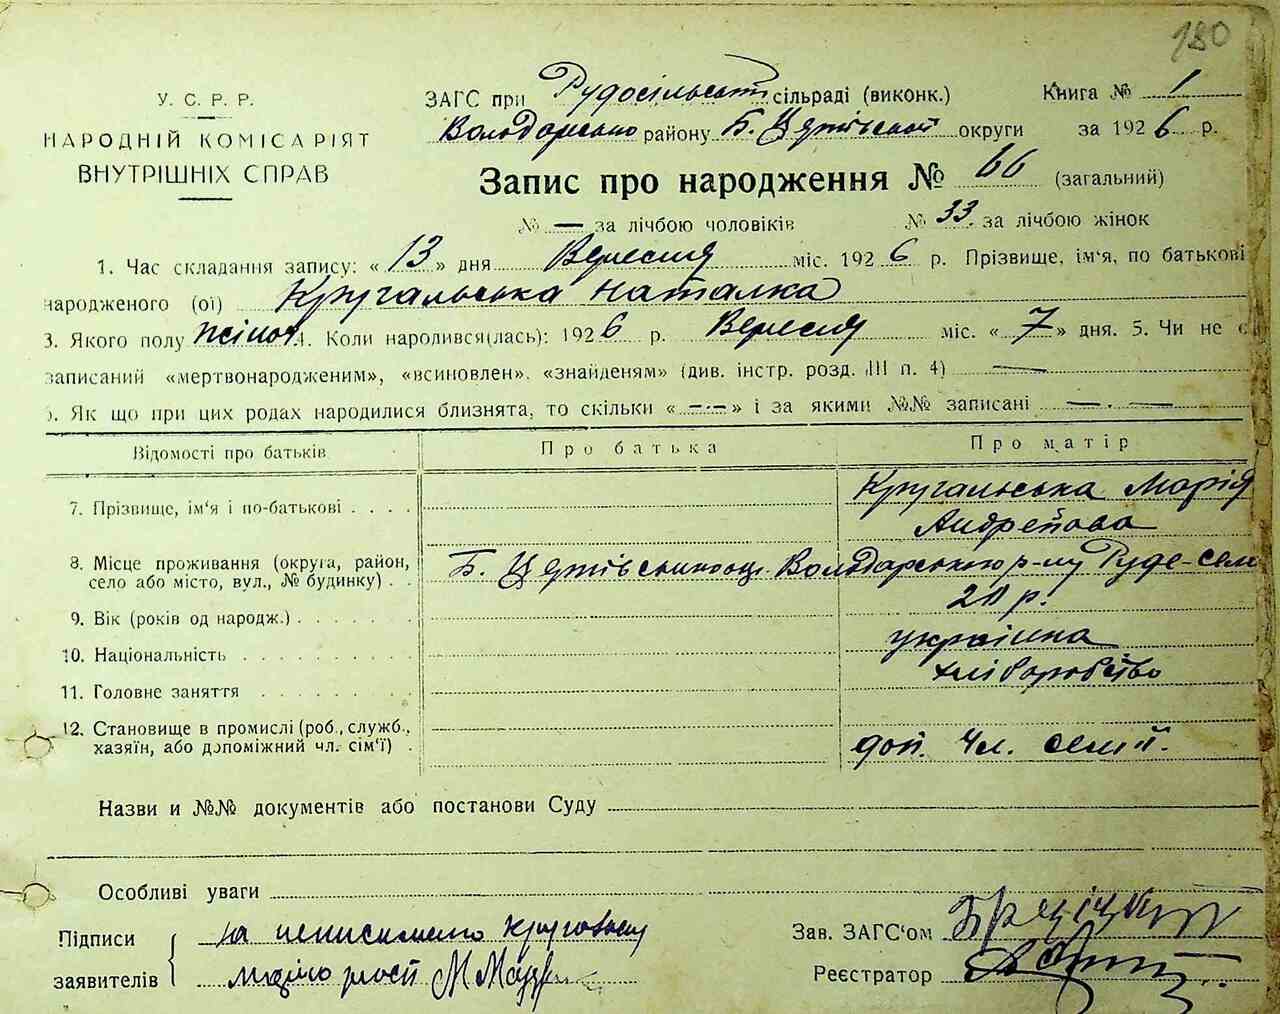 180
У. С. Р. Р.
НАРОДНІЙ КОМІСАРІЯТ
ВНУТРІШНІХ СПРАВ
ЗАГС при Рудосільськ сільраді (виконк.) Книга № 1
Володарсько району Б. Церківської округи за 1926 р.
Запис про народження № 66 (загальний)
№ — за лічбою чоловіків № 33. за лічбою жінок
1. Час складання запису: «13» дня Вересня міс. 1926 р. Прізвище, ім'я, по батькові
народженого (ої) Кругальська Наталка
3. Якого полу жіноч 4. Коли народився(лась): 1926 р. Вересня міс. «7» дня. 5. Чи не є
записаний «мертвонародженим», «всиновлен», «знайденям» (див. інстр. розд. III п. 4) —
6. Як що при цих родах народилися близнята, то скільки «—·—» і за якими №№ записані — . —
Відомості про батьків Про батька Про матір
7. Прізвище, ім'я і по-батькові . . . . Кругальська Марія
Андреївова
8. Місце проживання (округа, район, село або місто, вул., № будинку) . . Б. Церківська Володарського р-ну Руде-село
9. Вік (років од народж.) . . . . . . . р.
10. Національність . . . . . . . . . . українка
11. Головне заняття . . . . . . . . . хліборобство
12. Становище в промислі (роб., служб., хазяїн, або допоміжний чл. сім'ї) . доп. чл. семії.
Назви и №№ документів або постанови Суду
Особливі уваги
Підписи за неписьмено
заявителів
Зав. ЗАГС'ом
Реєстратор